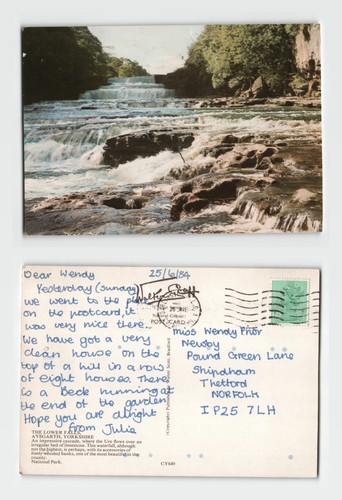 Dear Wendy
25/6/84
Yesterday (Sunday)
we went to the place
on the postcard, it
was very nice there.
We have got a very
clean house on the
top of a hill in a row
of eight houses. There
is a Beck running at
the end of the garden
Hope you are alright
from Julia
Miss Wendy Prior
Newby
Pound Green Lane
Shipdham
Thetford
NORFOLK
IP25 7LH
THE LOWER FALLS,
AYSGARTH, YORKSHIRE
An impressive cascade, where the Ure flows over an
irregular bed of limestone. This waterfall, although
not the highest, is perhaps, with its accessories of
finely-wooded banks, one of the most beautiful in the
county.
National Park.
CY649
POSTCARD